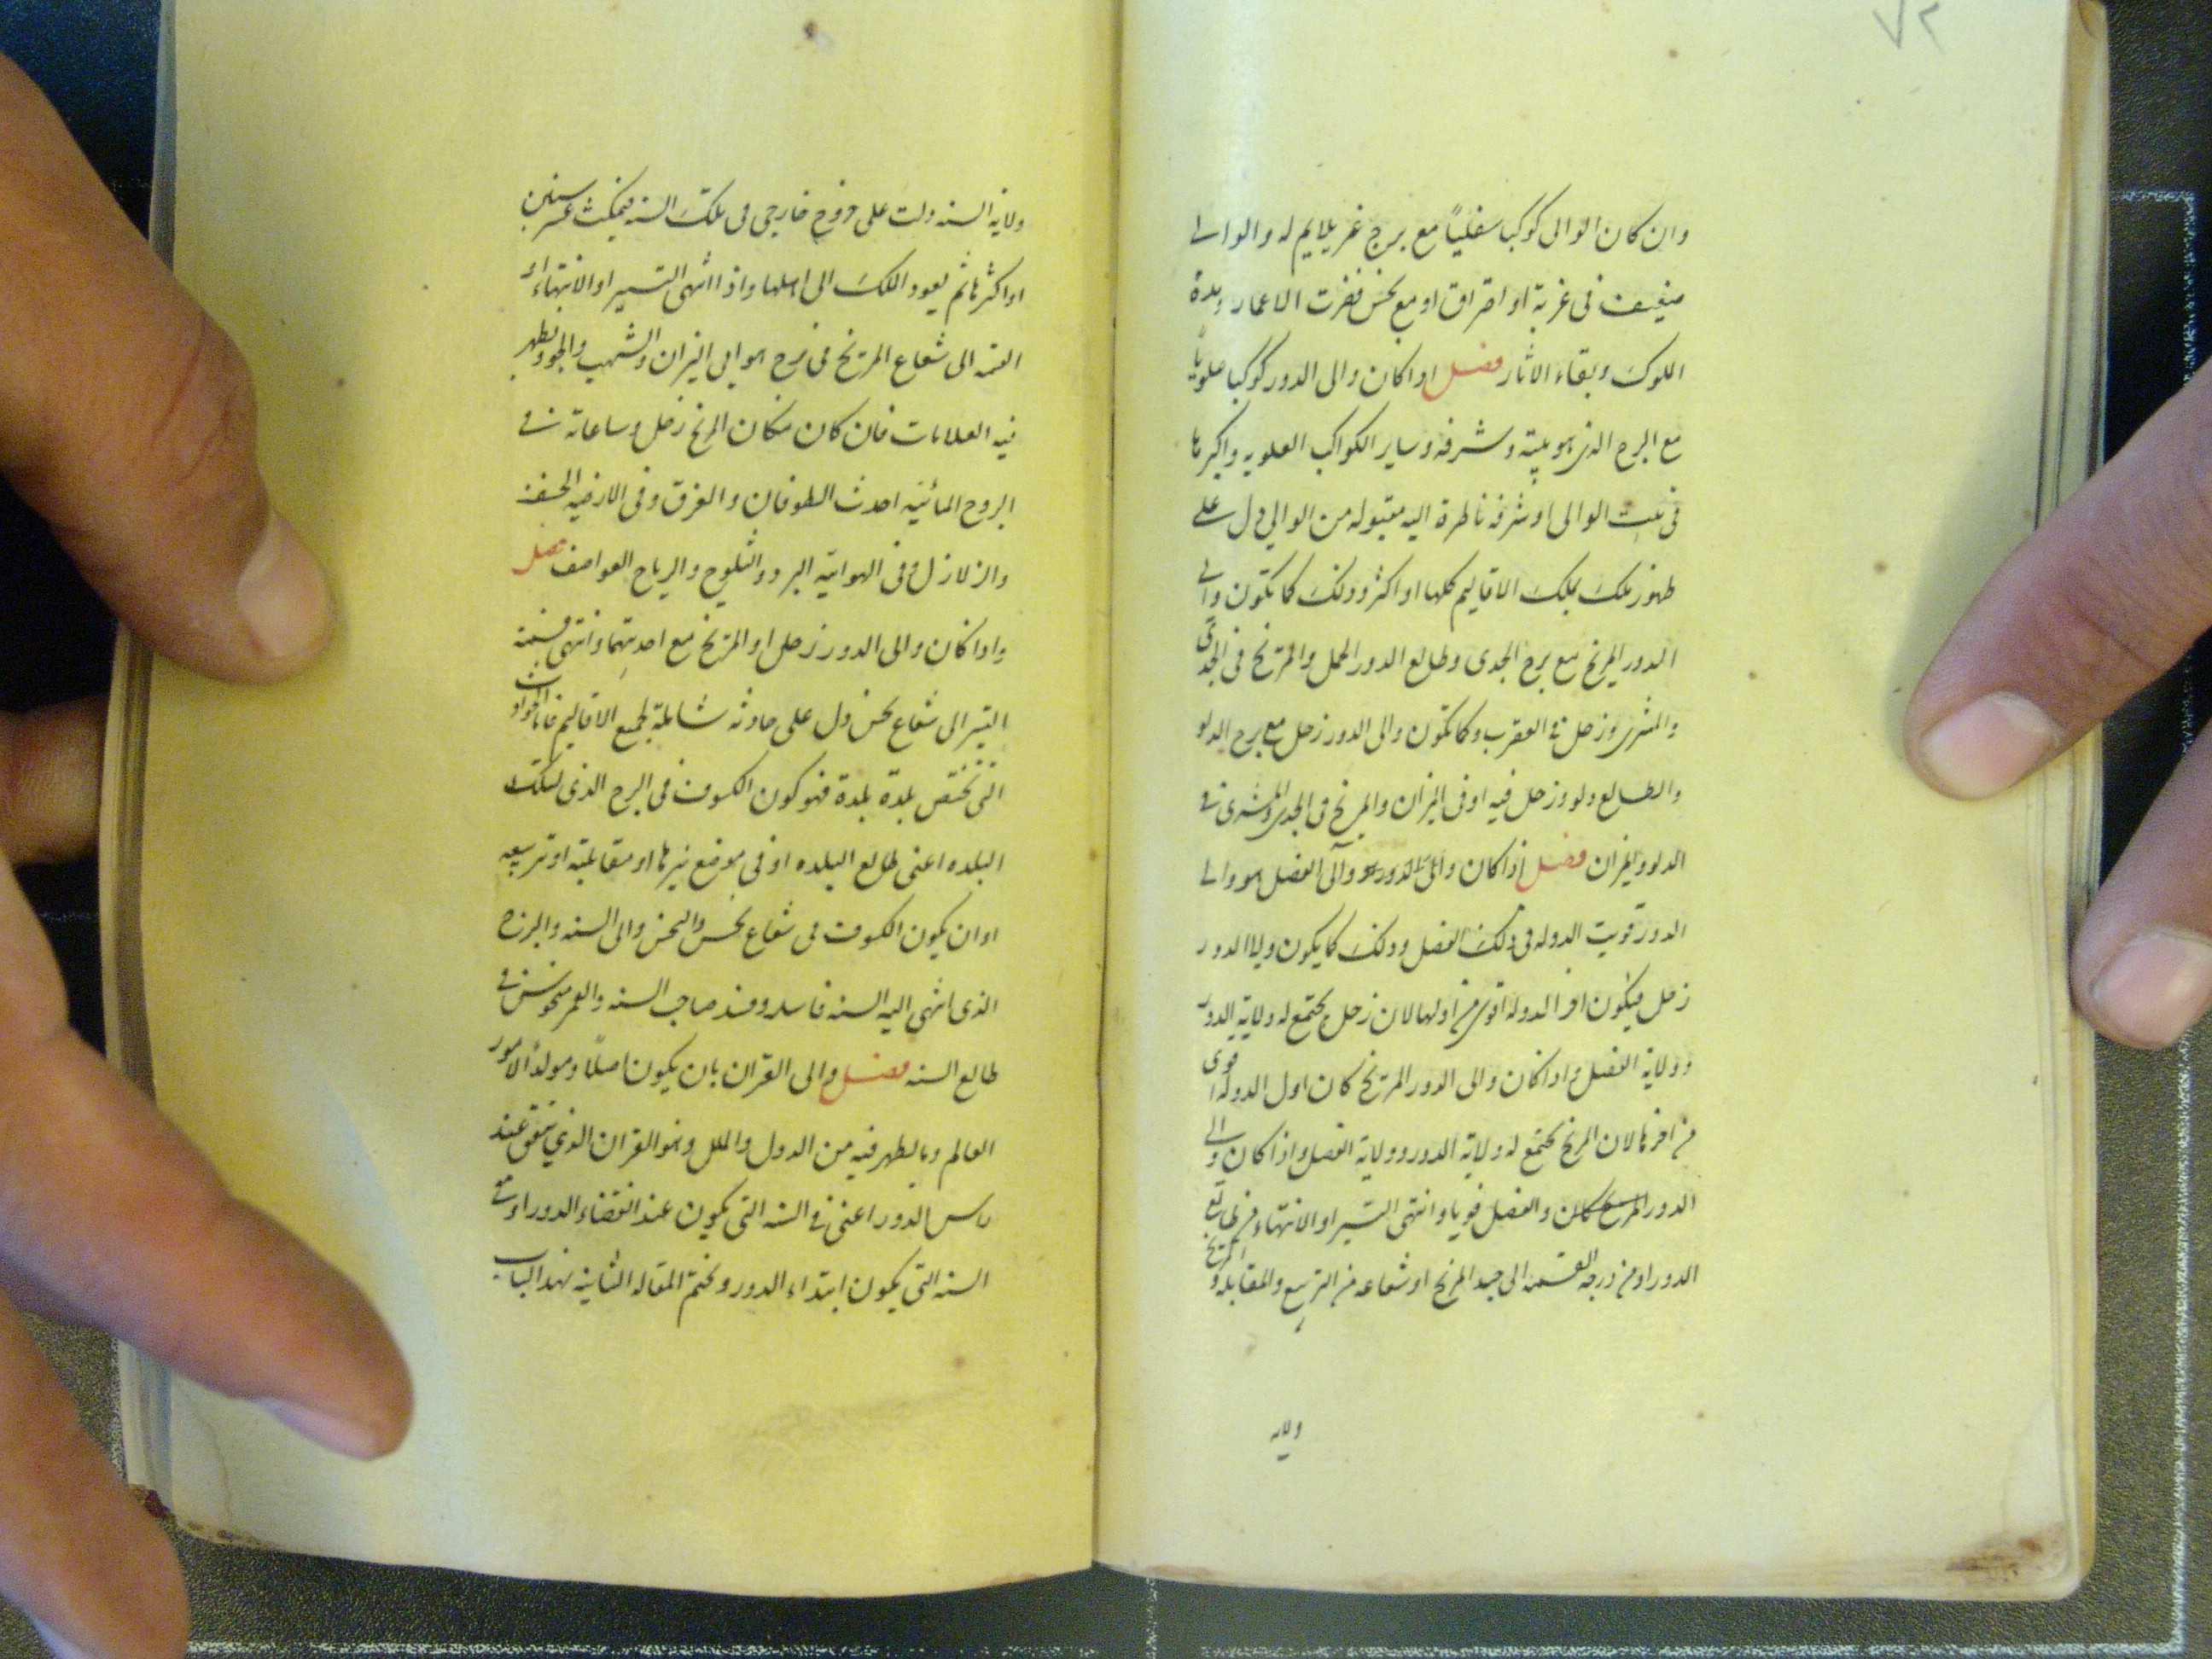 ٧٢
وان كان الوالى كوكبا سفليّاً مع برج غير يلايم له والوالى
ضعيف فى غربة او احتراق او مع نحس قصرت الاعمار ومدة
الملوك وبقاء الاثار فصل اذا كان والى الدور كوكبا علويّاً
مع البرج الذى هو بيته وشرفه وساير الكواكب العلويه واكثرها
فى بيت الوالى او شرفه ناظرة اليه مقبوله من الوالي دل على
ظهور ملك يملك الاقاليم كلها او اكثر وذلك كما يكون والى
الدور المريخ مع برج الجدى وطالع الدور الحمل والمريخ فى الجدى
والمشترى وزحل فى العقرب وكما يكون والى الدور زحل مع برج الدلو
والطالع دلو وزحل فيه او فى الميزان والمريخ فى الجدى والمشترى فى
الدلو والميزان فصل اذا كان والى الدور هو والى الفصل هو والى
الدور قويت الدوله فى ذلك الفصل وذلك كما يكون والى الدور
زحل فيكون اخر الدوله اقوى من اولها لان زحل يجتمع له ولاية الدور
وولاية الفصل واذا كان والى الدور المريخ كان اول الدولة اقوى
من اخرها لان المريخ يجتمع له ولاية الدور وولاية الفصل واذا كان والى
الدور المريخ كان والفصل قويا وانتهى التسير او الانتهاء من طالع
الدور او من درجه القسمه الى جسد المريخ او شعاعه من التربيع والمقابله والمريخ
ولايه
ولاية السنه دلت على خروج خارجى فى تلك السنه فيمكث عشر سنين
او اكثرها ثم يعود الملك الى اهلها واذا انتهى التسيير او الانتهاء او
القسمه الى شعاع المريخ فى برج هوايى النيران والشهب والجو ويظهر
فيه العلامات فان كان مكان المريخ زحل وساعاته فى
البروج المائيّه احدث الطوفان والغرق وفى الارضيه الخسف
والزلازل وفى الهوائيّه البرد والثلوج والرياح العواصف فصل
واذا كان والى الدور زحل او المريخ مع احد بيتهما وانتهى قسمة
التسير الى شعاع نحس دل على حادثه شاملة لجميع الاقاليم فاما الحوادث
التى تختص بلدة بلدة فهو كون الكسوف فى البرج الذى لتلك
البلده اعنى طالع البلده او فى موضع نيرها او مقابلته او تربيعه
او ان يكون الكسوف فى شعاع نحس والنحس والى السنه والبرج
الذى انتهى اليه السنه فاسد وفسد صاحب السنه والقمر منحوس فى
طالع السنه فصل والى القران بان يكون اصلاً ومولد الامور
العالم وما يظهر فيه من الدول والملل وهو القران الذي يتفق عند
راس الدور اعنى فى السنه التى يكون عند انقضاء الدور او فى
السنه التى يكون ابتداء الدور ونختم المقاله الثانيه بهذا الباب